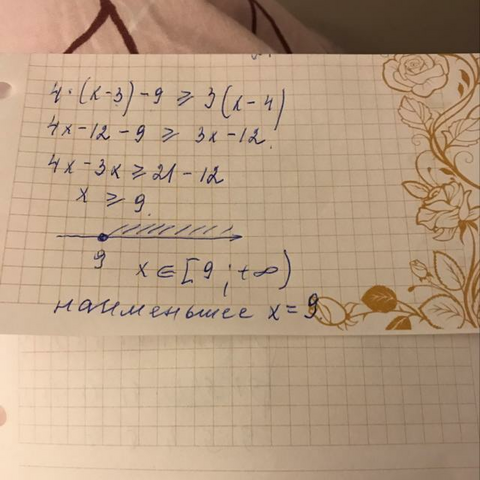 4·(x-3)-9 ≥ 3(x-4)
4x-12-9 ≥ 3x-12
4x-3x ≥ 21-12
x ≥ 9
9
x ∈ [9; +∞)
наименьшее x = 9